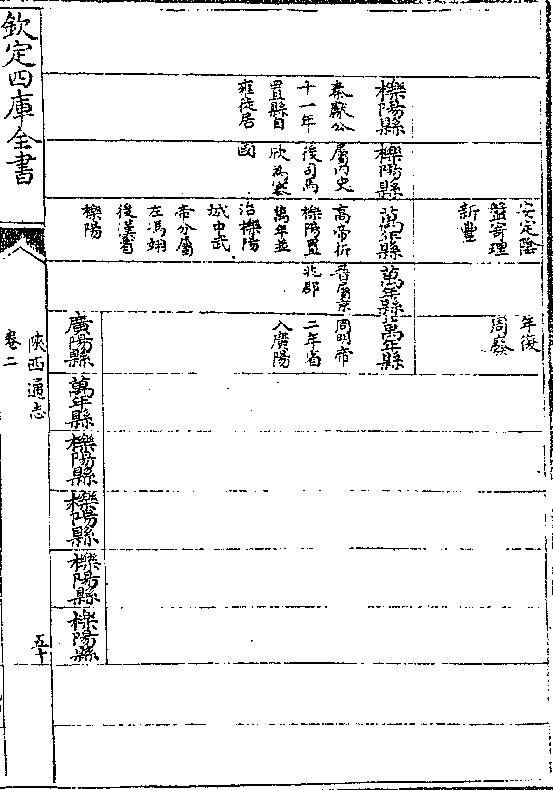 安定陰
盤寄理
新豐
年復
周廢
櫟陽縣
秦獻公
十一年
置縣自
雍徙居
櫟陽縣
屬内史
後司馬
欣為塞
國
萬年縣
高帝析
櫟陽置
萬年並
治櫟陽
城中武
帝分屬
左馮翊
後漢省
櫟陽
萬年縣
晉屬京
兆郡
萬年縣
周明帝
二年省
入廣陽
廣陽縣
萬年縣
櫟陽縣
櫟陽縣
櫟陽縣
櫟陽縣
欽定四庫全書
陝西通志
卷二
五十